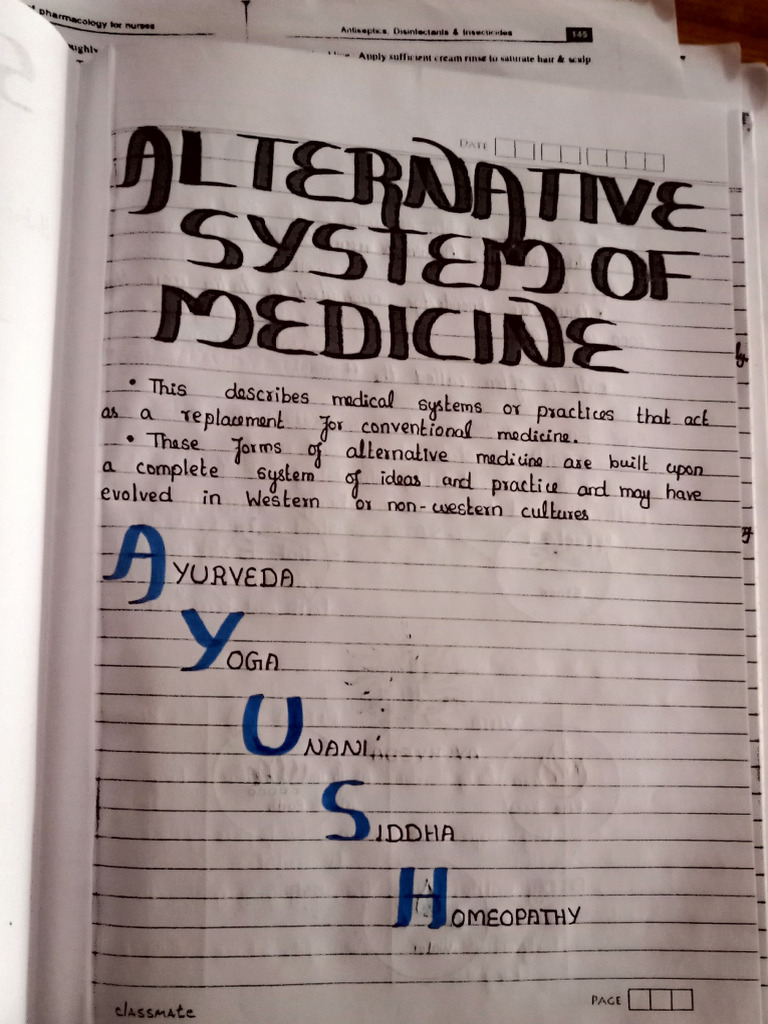 pharmacology for nurses
Antiseptics, Disinfectants & Insecticides 145
Apply sufficient cream rinse to saturate hair & scalp
DATE
ALTERNATIVE
SYSTEM OF
MEDICINE
• This describes medical systems or practices that act
as a replacement for conventional medicine.
• These forms of alternative medicine are built upon
a complete system of ideas and practice and may have
evolved in Western or non-western cultures
AYURVEDA
YOGA
UNANI
SIDDHA
HOMEOPATHY
classmate
PAGE